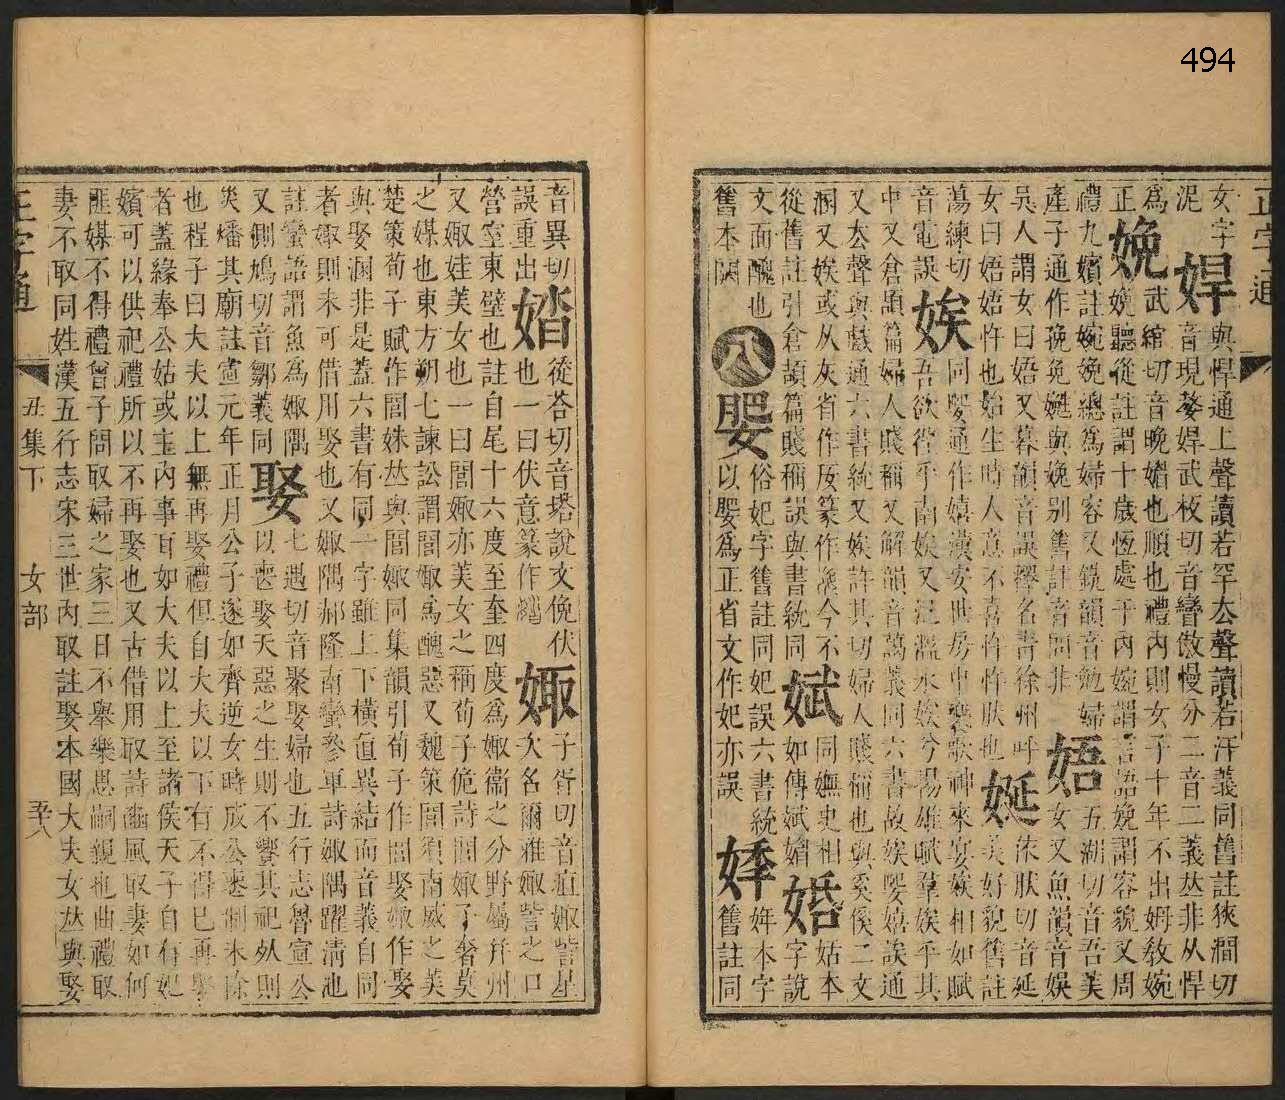 494
正字通
女字與悍通上聲讀若罕去聲讀若汗義同舊註狹澗切
泥 娨 音現嫠娨武枚切音蠻傲慢分二音二義𠀤非从悍
爲 娩 武綰切音晚媚也順也禮內則女子十年不出姆敎婉
正娩聽從註謂十歲恆處于內婉謂言語娩謂容貌又周
禮九嬪註婉娩總爲婦容又鏡韻音勉婦
產子通作㝃免娩與娩别舊註音問非 娪 五湖切音吾美女又魚韻音娛
吳人謂女曰娪又暮韻音誤釋名靑徐州呼
女曰娪娪忤也始生時人意不喜忤忤肰也 娫 美好貌舊註
蕩練切音電誤 娭 同嬰通作嬉漢安世房中樂歌神來宴娭相如賦
吾欲徃乎南娭又汜濫水娭兮揚雄賦羣娭乎其
中又倉頡篇婦人賤稱又解韻音藹義同六書故娭嬰嬉誒通
又去聲與戲通六書統又娭許其切婦人賤稱也與奚傒二文
溷又娭或从灰省作㞋篆作今不
從舊註引倉頡篇賤稱誤與書統同 娬 同嫵史相如傳娬媚 㛰 姑本字說
文面醜也 八 㛅 俗妃字舊註同妃誤六書統
以㛅爲正省文作妃亦誤 㚅 姩本字舊註同
舊本闕
音異切
誤重出 㛥 從荅切音塔說文俛伏也一曰伏意篆作 娵 子胥切音疽娵訾星
次名爾雅娵訾之口
營室東壁也註自尾十六度至奎四度爲娵衞之分野屬幷州
又娵娃美女也一曰閭娵亦美女之稱荀子佹詩閭娵子奢莫
之媒也東方朔七諫訟謂閭娵爲醜惡又魏策閭須南威之美
楚策荀子賦作閭姝𠀤與閭娵同集韻引荀子作閭娶娵作娶
與娶溷非是蓋六書有同一字雖上下橫直異結而音義自同
者娵則未可借用娶也又娵隅郝隆南蠻參軍詩娵隅躍淸池
註蠻語謂魚爲娵隅
又側鳩切音鄒義同 娶 七遇切音聚娶婦也五行志魯宣公
以喪娶天惡之生則不饗其祀死則
災燔其廟註宣元年正月公子遂如齊逆女時成公喪制未除
也程子曰大夫以上無再娶禮但自大夫以下有不得已再娶
者蓋緣奉公姑或主內事耳如大夫以上至諸侯天子自有妃
嬪可以供祀禮所以不再娶也又古借用取詩豳風取妻如何
匪媒不得禮曾子問取婦之家三日不舉樂思嗣親也曲禮取
妻不取同姓漢五行志宋三世內取註娶本國大夫女𠀤與娶
正字通 丑集下 女部 五十八